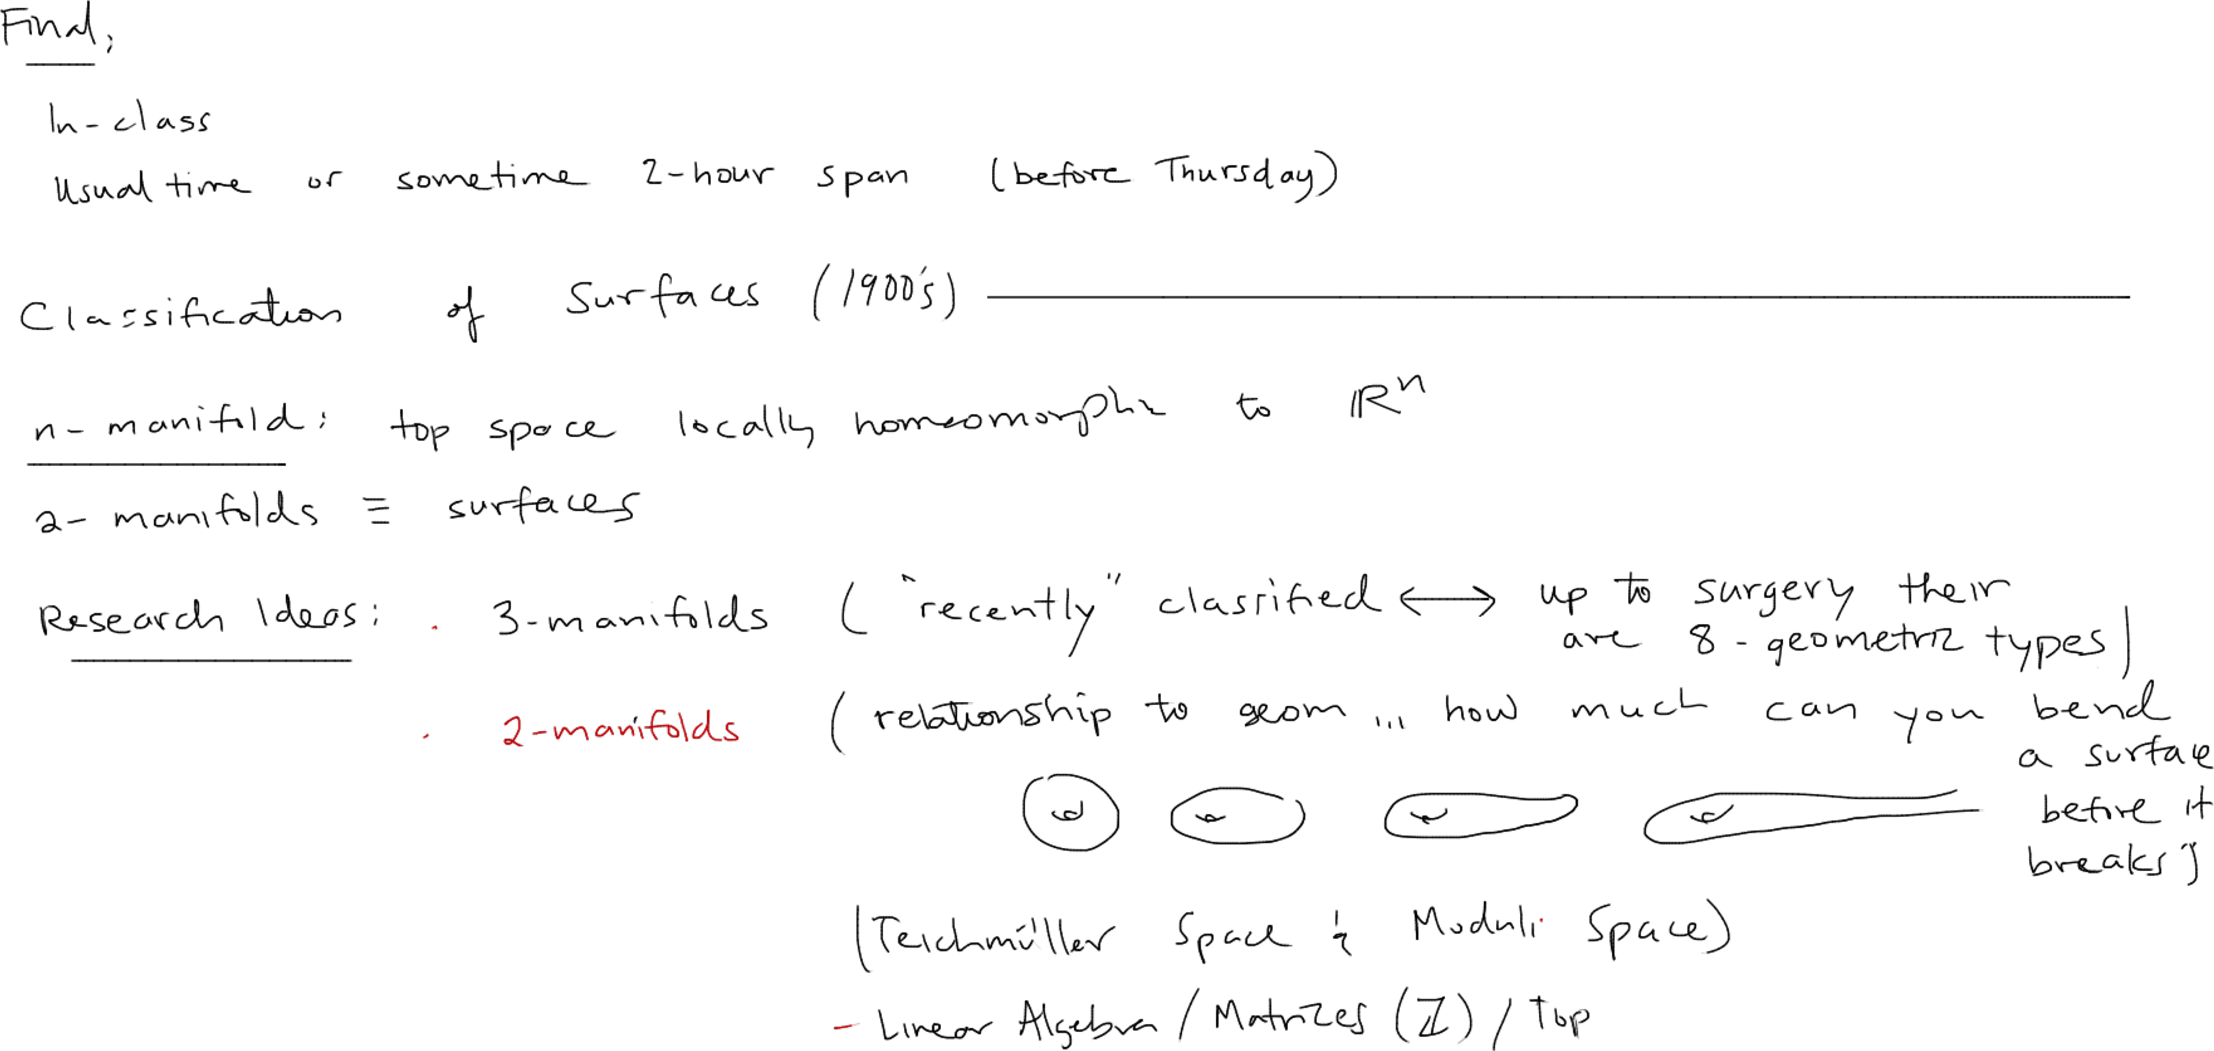 Final,
In-class
Usual time or sometime 2-hour span (before Thursday)
Classification of Surfaces (1900's)
n-manifold: top space locally homeomorphic to ℝⁿ
2-manifolds ≡ surfaces
Research Ideas: · 3-manifolds ( "recently" classified ⟷ up to surgery their
are 8-geometric types)
· 2-manifolds (relationship to geom ... how much can you bend
a surface
before it
breaks)
(Teichmüller Space & Moduli Space)
- Linear Algebra / Matrizes (ℤ) / Top